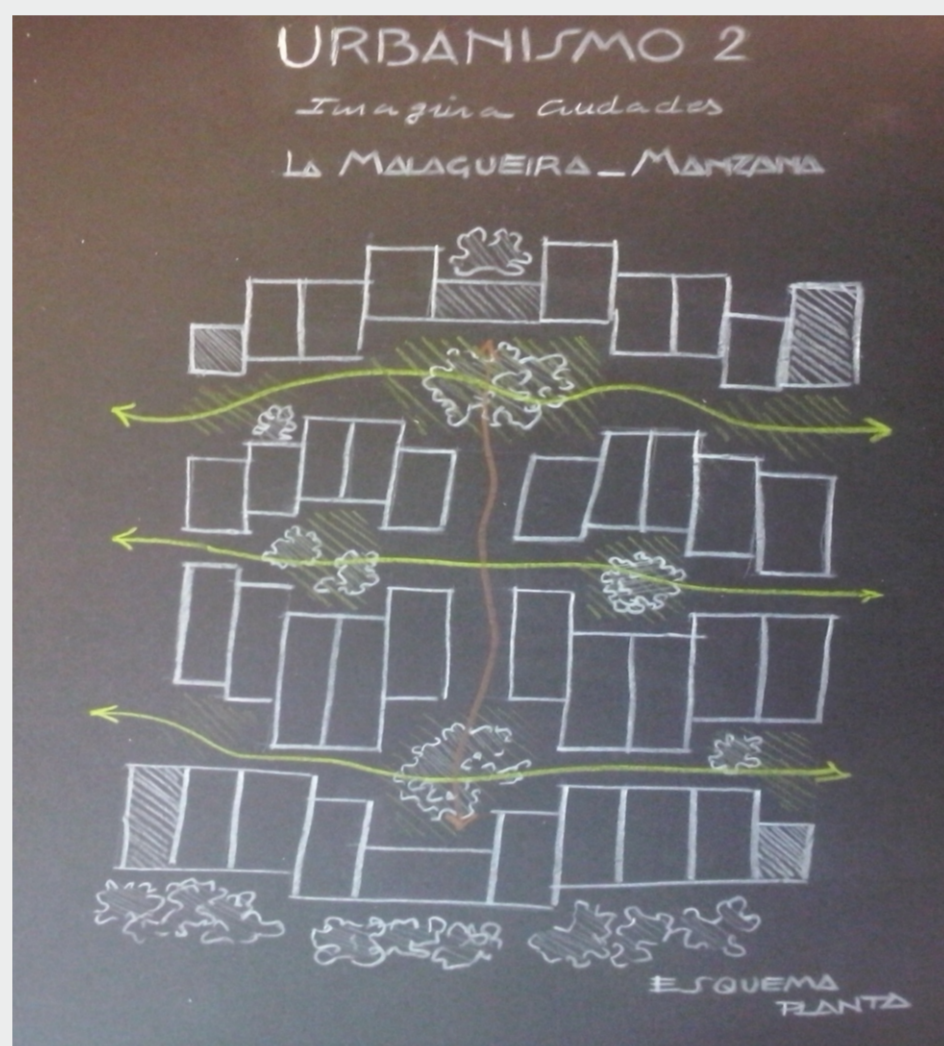 URBANISMO 2
Imagina Ciudades
LA MALAGUEIRA_MANZANA
ESQUEMA
PLANTA